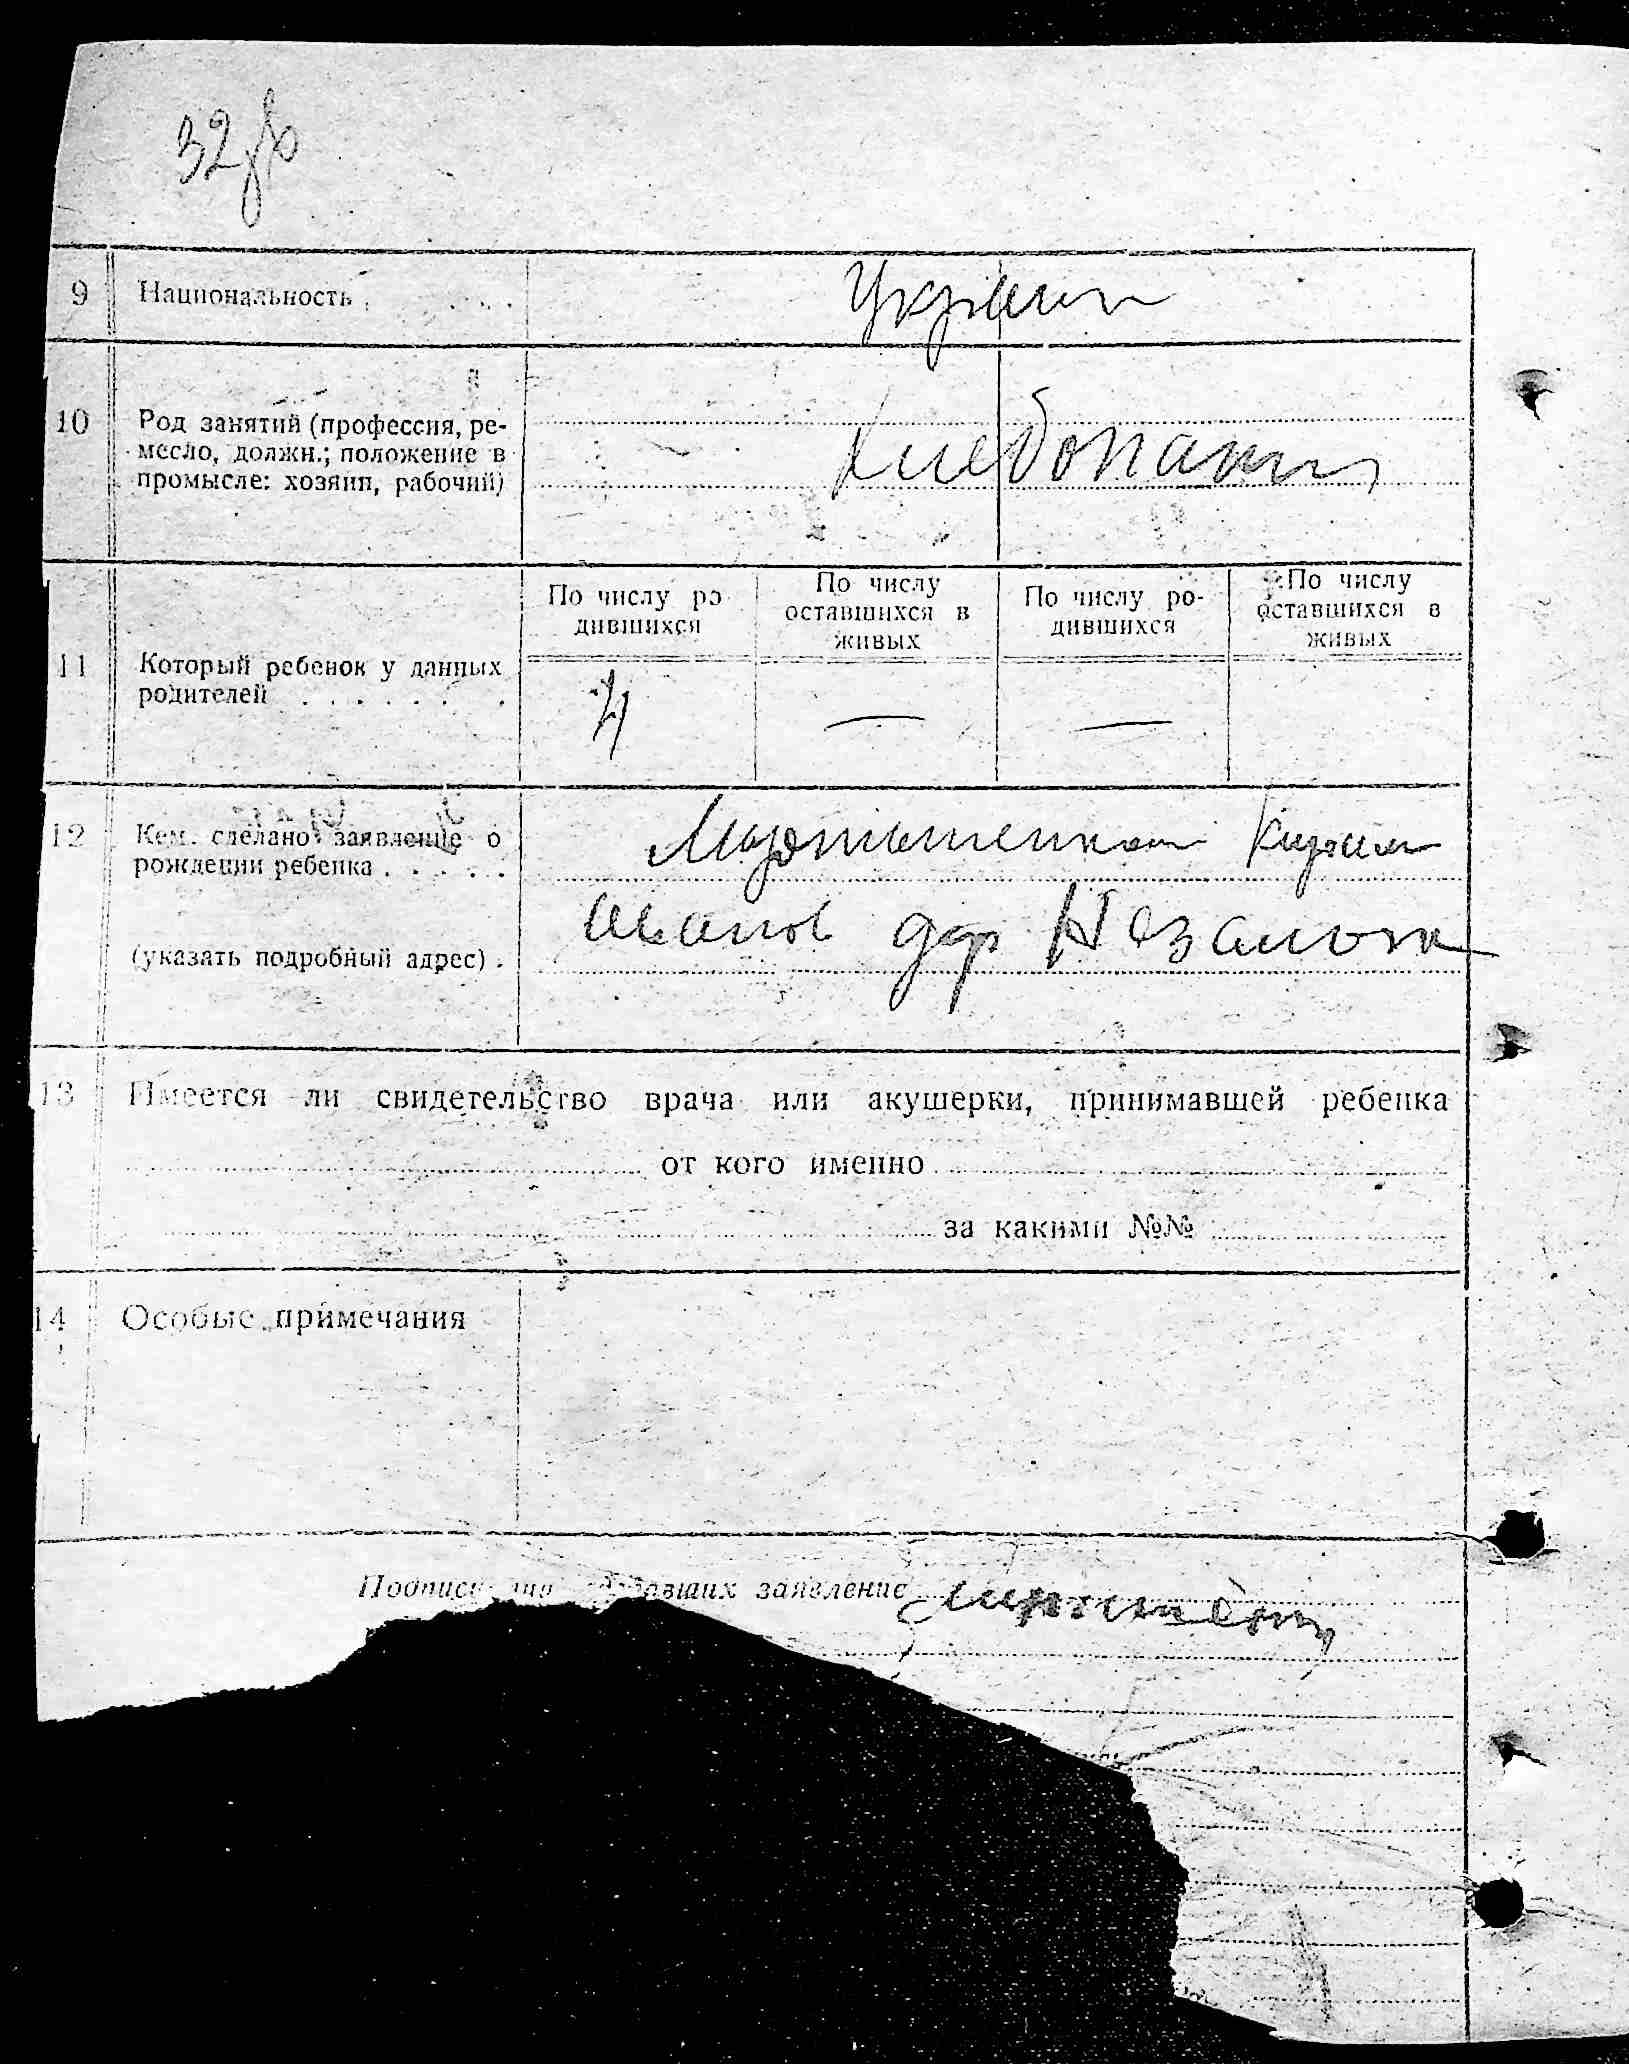 32
9 Национальность . . . . . Украин
10 Род занятий (профессия, ре-
месло, должн.; положение в
промысле: хозяин, рабочий)
Хлебопашц
11 Который ребенок у данных
родителей . . . . . . . .
По числу ро-
дившихся
По числу
оставшихся в
живых
По числу ро-
дившихся
По числу
оставшихся в
живых
4 — —
12 Кем сделано заявление о
рождении ребенка . . . . .
(указать подробный адрес) .
Кирилл
Иванов дер
13 Имеется ли свидетельство врача или акушерки, принимавшей ребенка
от кого именно
за какими №№
14 Особые примечания
Подписи заявление